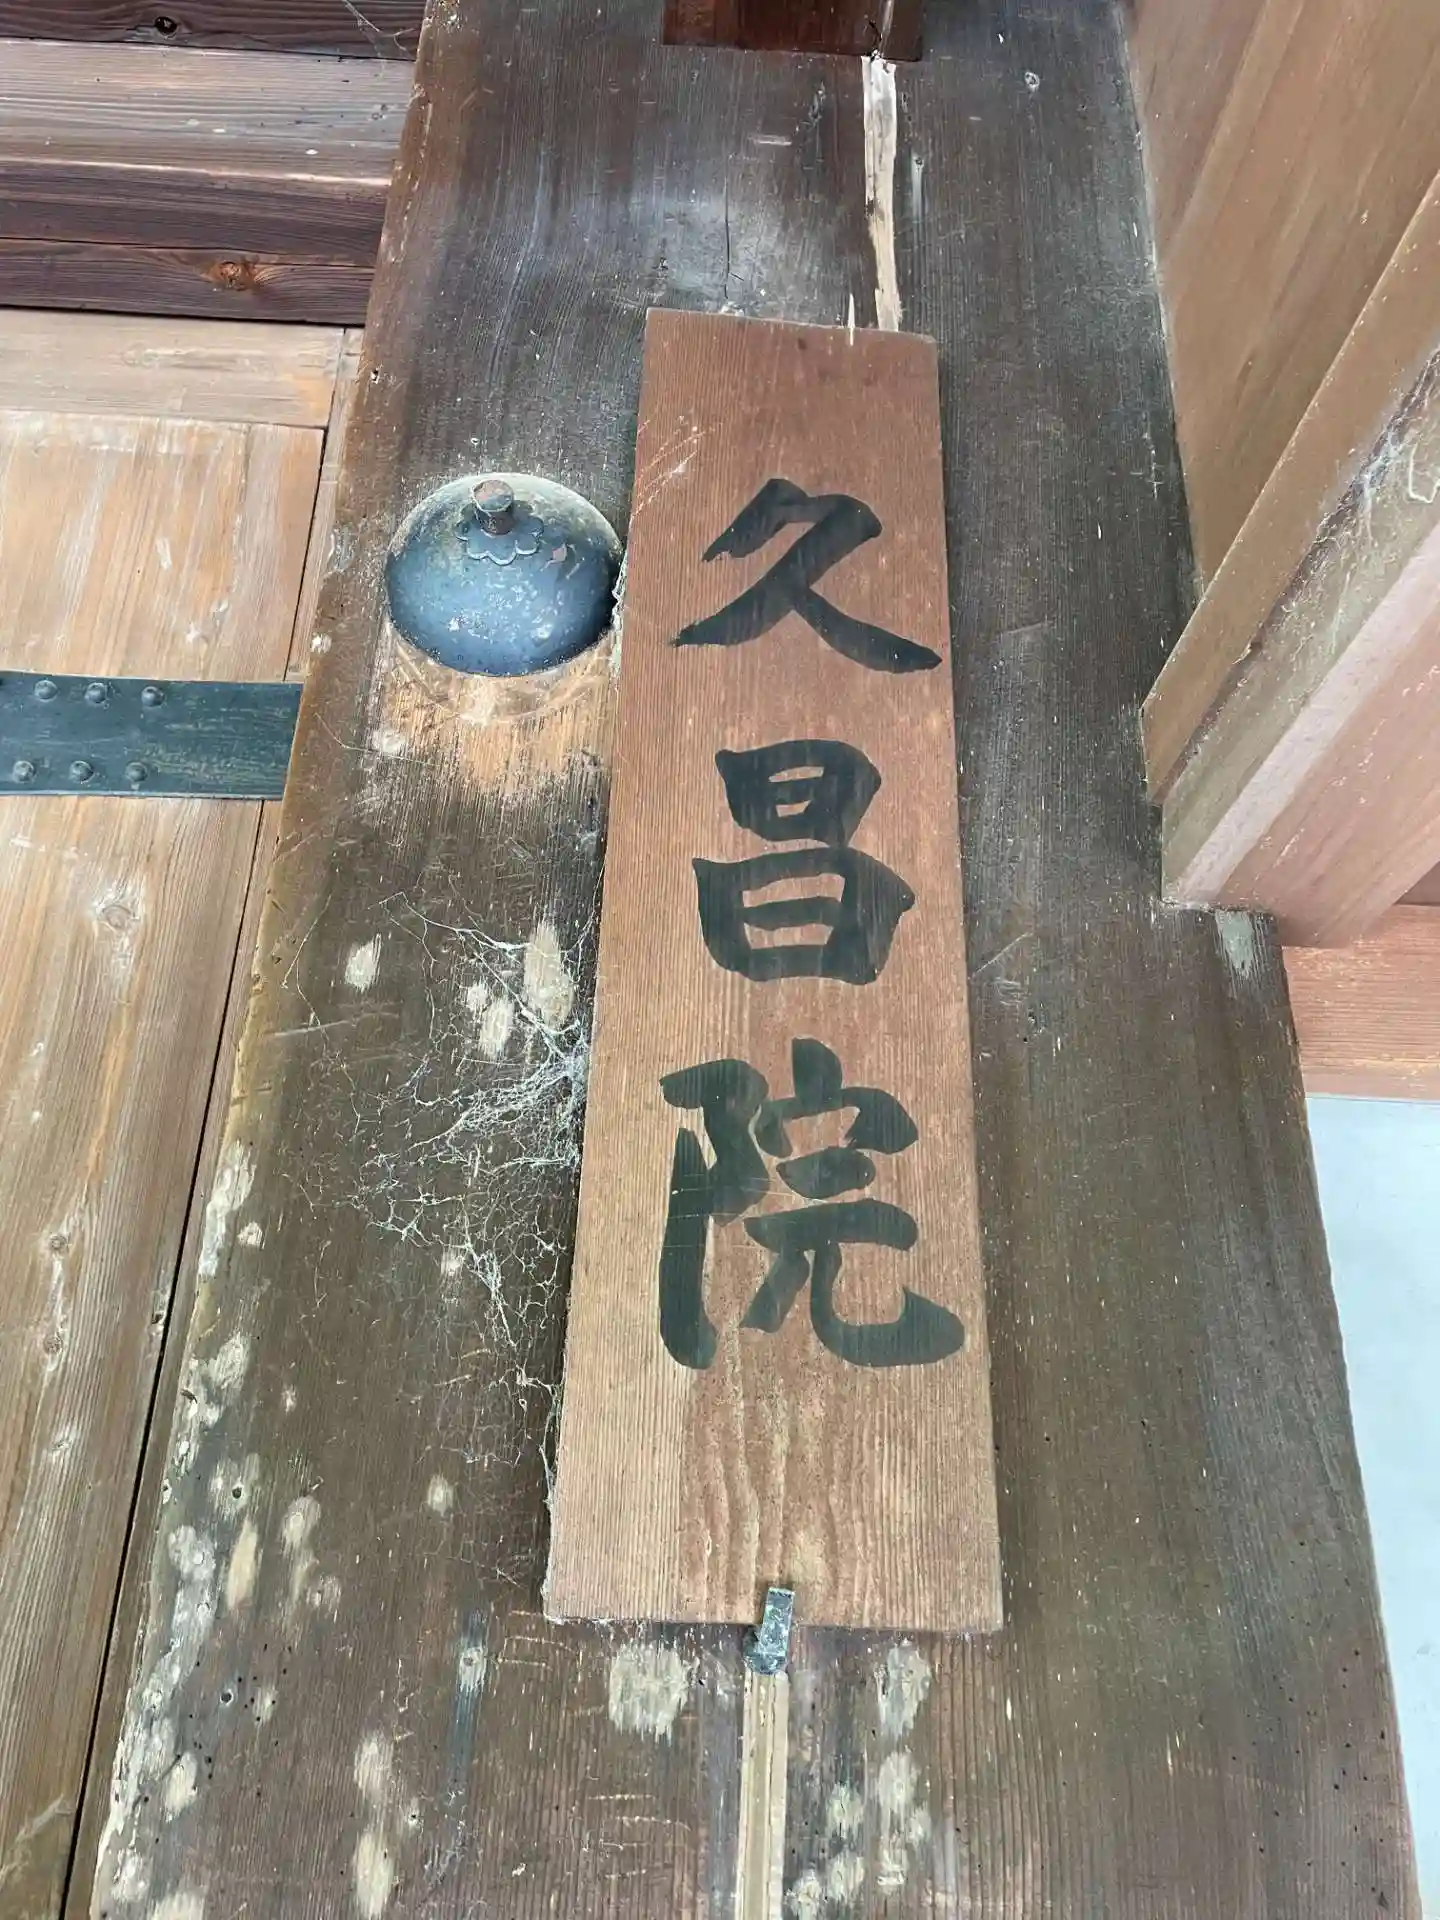 久昌院